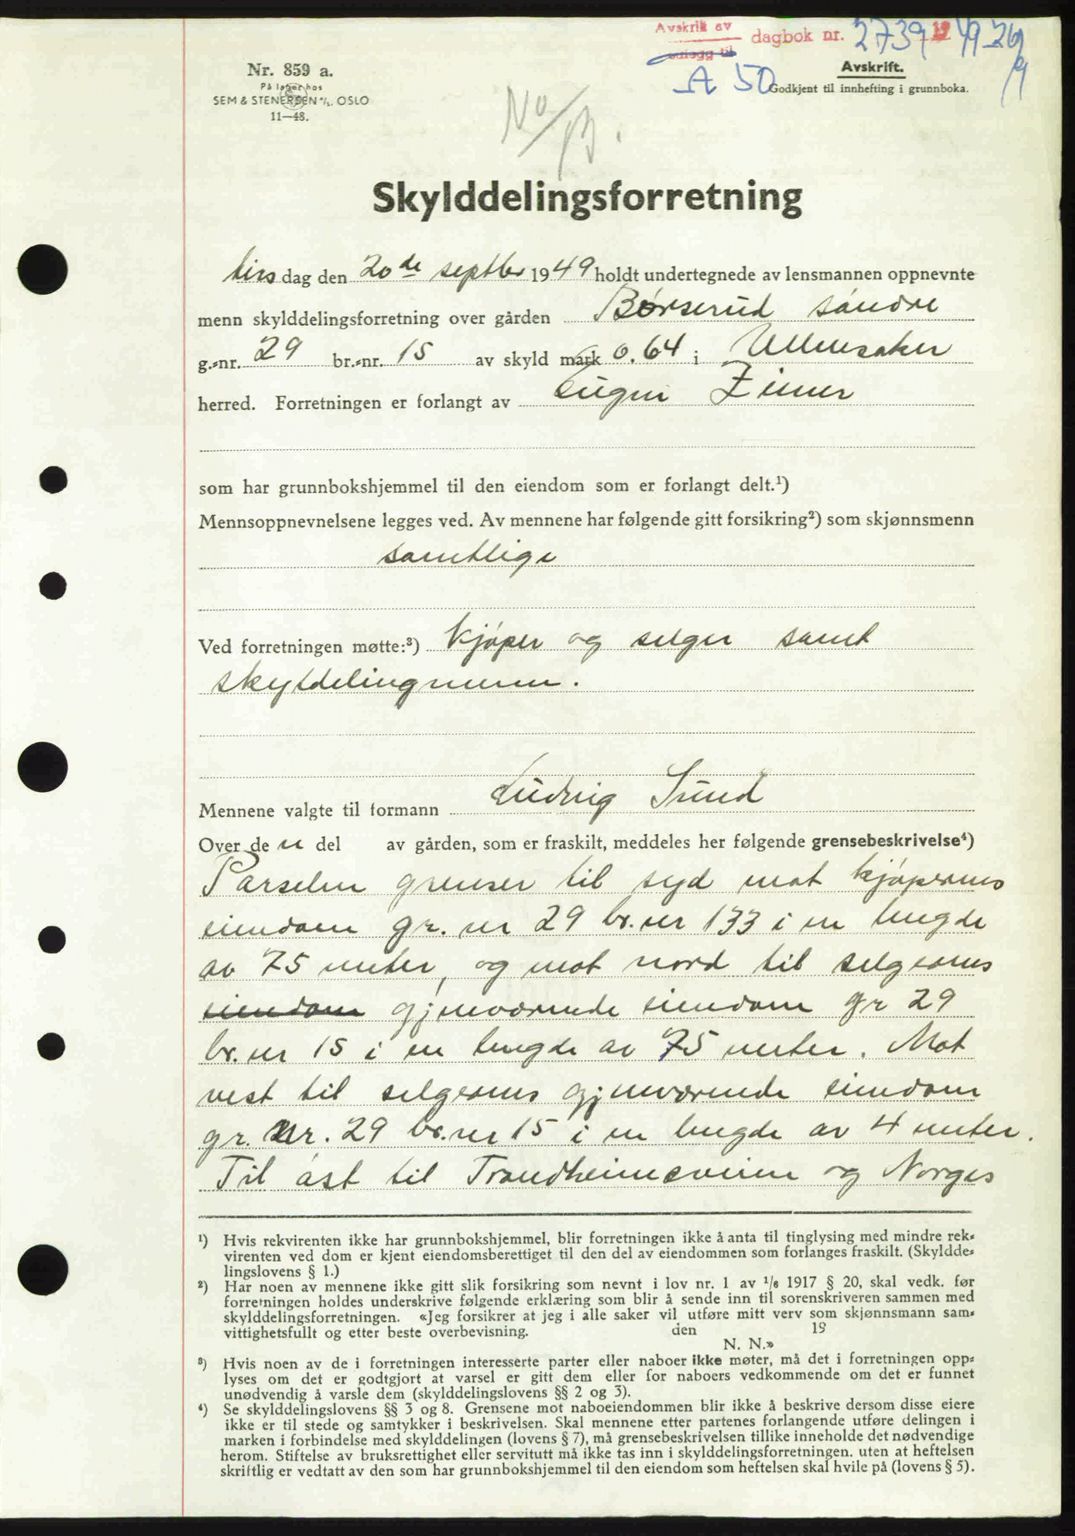 Avskrift av
dagbok nr. 2739 1949 - 26/9
A 50
Nr. 859 a.
På lager hos
SEM & STENERSEN A/S, OSLO
11—48.
Avskrift.
Godkjent til innhefting i grunnboka.
No/13.
Skylddelingsforretning
tirsdag den 20de septbr 1949 holdt undertegnede av lensmannen oppnevnte
menn skylddelingsforretning over gården Børserud søndre
g.-nr. 29 br.-nr. 15 av skyld mark 0.64 i Ullensaker
herred. Forretningen er forlangt av
som har grunnbokshjemmel til den eiendom som er forlangt delt.¹)
Mennsoppnevnelsene legges ved. Av mennene har følgende gitt forsikring²) som skjønnsmenn
samtlige
Ved forretningen møtte:³) Kjøper og selger samt
skylddelingmenn.
Mennene valgte til formann Ludvig Sund
Over de n del av gården, som er fraskilt, meddeles her følgende grensebeskrivelse⁴)
Parselen grenser til syd mot kjøperens
eiendom gr. nr 29 br. nr 133 i en lengde
av 75 meter, og mot nord til selgerens
eiendom gjenværende eiendom gr 29
br. nr 15 i en lengde av 75 meter. Mot
vest til selgerens gjenværende eiendom
gr. nr. 29 br. nr 15 i en lengde av 4 meter.
Til øst til Trondheimsveien og Norges
¹) Hvis rekvirenten ikke har grunnbokshjemmel, blir forretningen ikke å anta til tinglysing med mindre rek-
virenten ved dom er kjent eiendomsberettiget til den del av eiendommen som forlanges fraskilt. (Skyldde-
lingslovens § 1.)
²) Har noen av mennene ikke gitt slik forsikring som nevnt i lov nr. 1 av 1/6 1917 § 20, skal vedk. før
forretningen holdes underskrive følgende erklæring som blir å sende inn til sorenskriveren sammen med
skylddelingsforretningen. «Jeg forsikrer at jeg i alle saker vil utføre mitt verv som skjønnsmann sam-
vittighetsfullt og etter beste overbevisning. den 19
N. N.»
³) Hvis noen av de i forretningen interesserte parter eller naboer ikke møter, må det i forretningen opp-
lyses om det er godtgjort at varsel er gitt dem eller for naboers vedkommende om det er funnet
unødvendig å varsle dem (skylddelingslovens §§ 2 og 3).
⁴) Se skylddelingslovens §§ 3 og 8. Grensene mot naboeiendommen blir ikke å beskrive dersom disse eiere
ikke er til stede og samtykker i beskrivelsen. Skal mennene etter partenes forlangende utføre delingen i
marken i forbindelse med skylddelingen (lovens § 7), må grensebeskrivelsen tillike inneholde det nødvendige
herom. Stiftelse av bruksrettighet eller servitutt må ikke tas inn i skylddelingsforretningen. uten at heftelsen
skriftlig er vedtatt av den som har grunnbokshjemmel til den eiendom som heftelsen skal hvile på (lovens § 5).